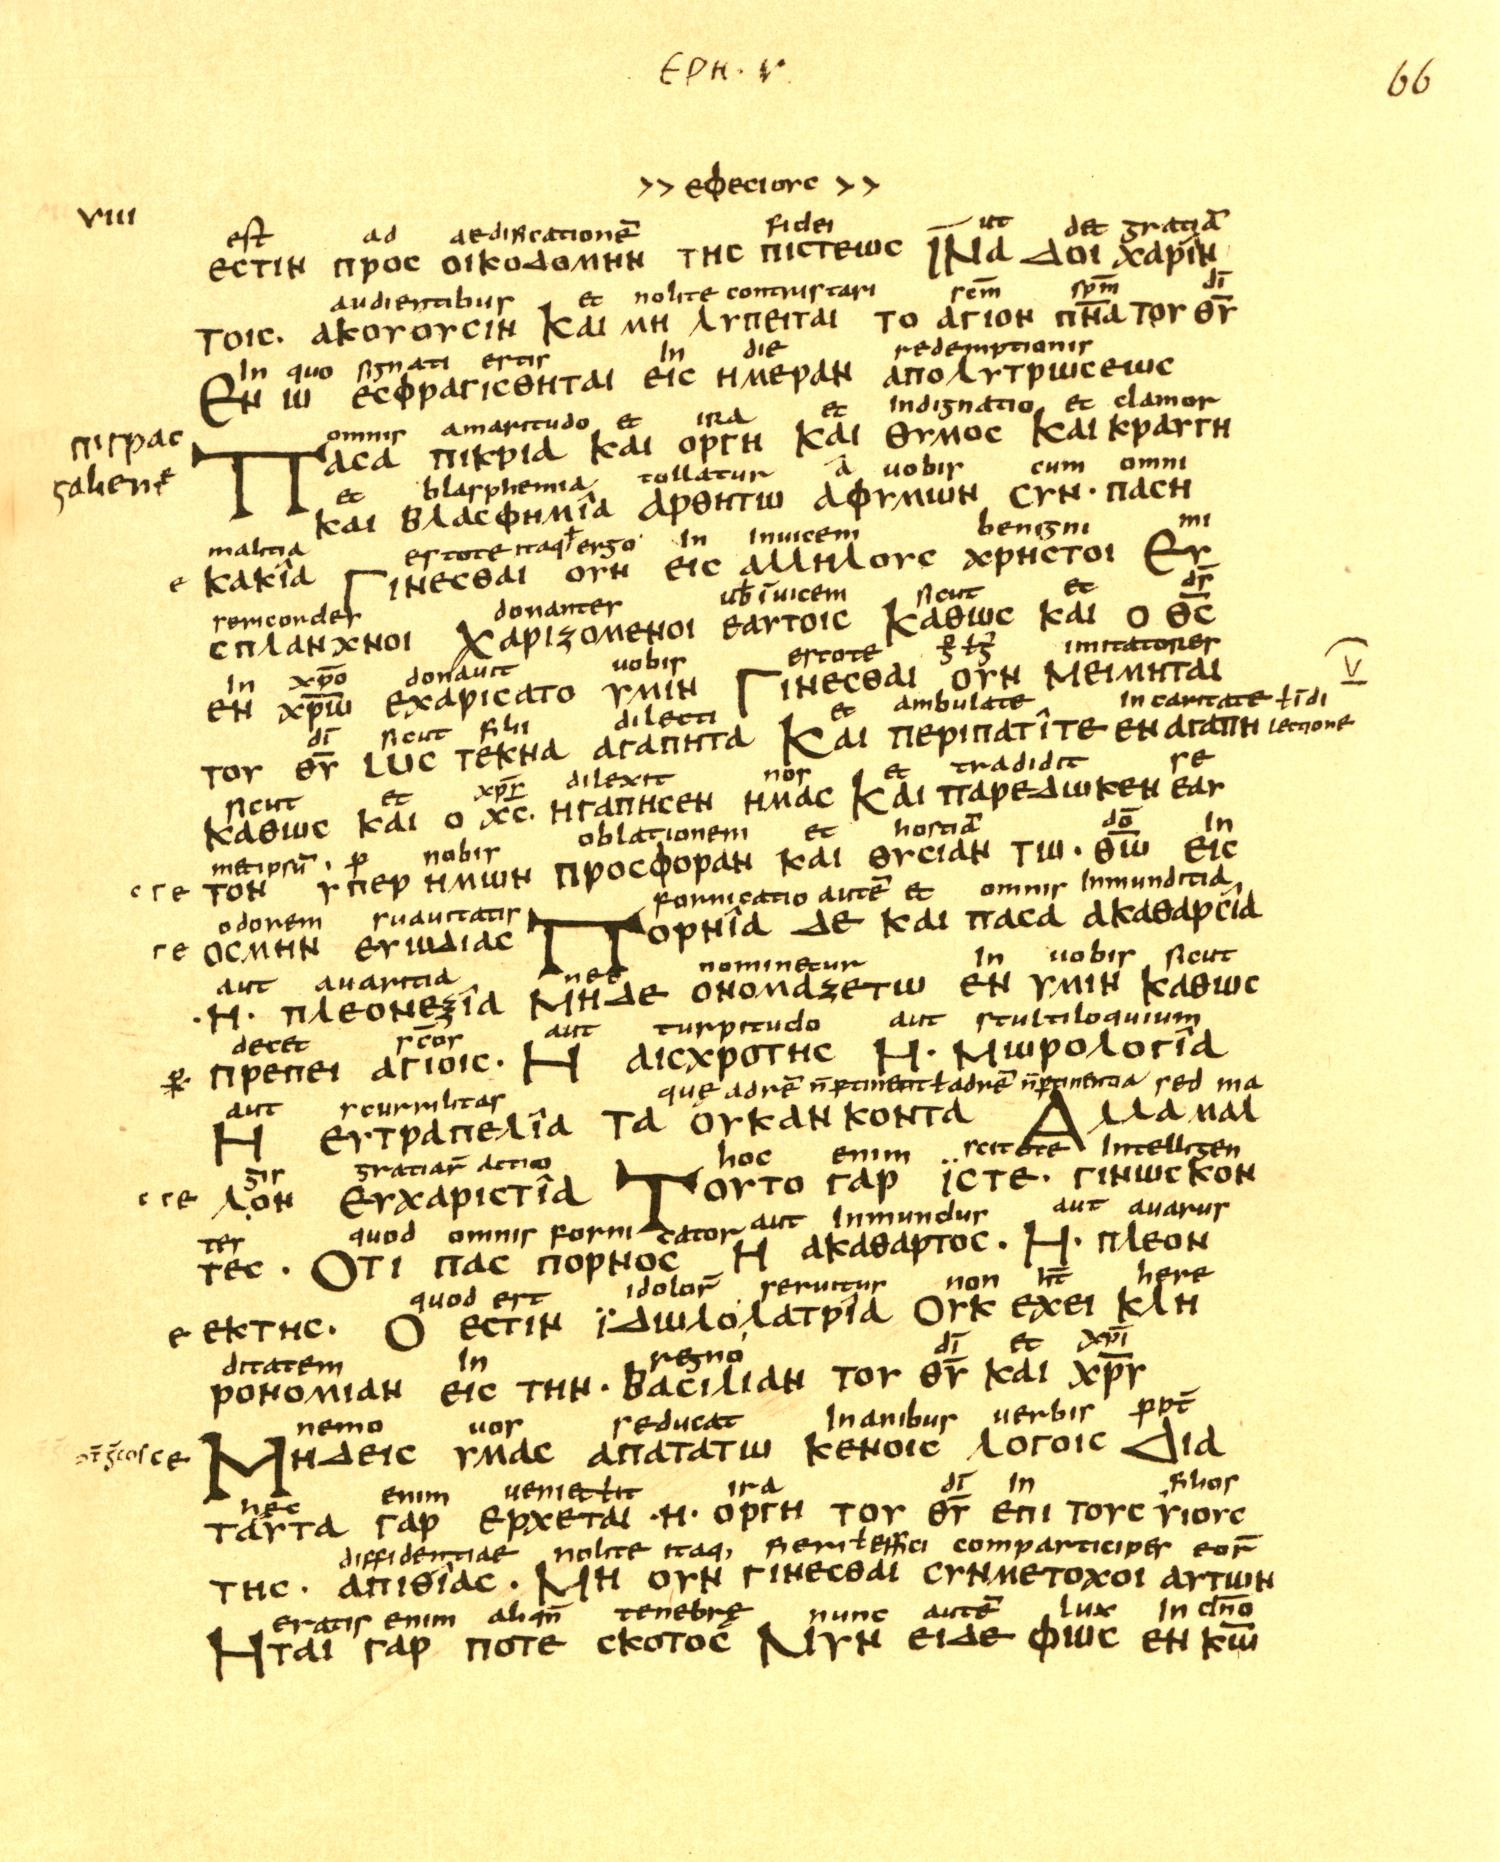 EPH. V.
66
>> εφεσιους >>
VIII
est ad aedificationē fidei ut det gratiā
εστιν προς οικοδομην της πιστεως ΙΝα Δοι χαριν
audientibus et nolite contristari scm̄ spm̄ dī
τοις. ακουουσιν Και μη λυπειται το αγιον πν̄α του θῡ
In quo signati estis In die redemptionis
Εν ω εσφραγισθηται εις ημεραν απολυτρωσεως
omnis amaritudo et ira et indignatio et clamor
Πασα πικρια και οργη Και θυμος Και κραυγη
et blasphemia tollatur a uobis cum omni
και βλασφημια αρθητω αφυμων συν. παση
malitia estote itaq ł ergo In inuicem benigni mi
κακια Γινεσθαι ουν εις αλληλους χρηστοι Ευ
sericordes donantes sicut et ds̄
σπλανχνοι Χαριζομενοι εαυτοις Καθως και ο θς̄
In xp̄o donauit uobis estote imitatores
εν χρω̄ εχαρισατο υμιν Γινεσθαι ουν Μειμηται
V
dī sicut filii dilecti et ambulate in caritate ł i di
του θῡ ως τεκνα αγαπητα Και περιπατιτε εν αγαπη lectione
sicut et xpr̄ dilexit nos et tradidit se
καθως και ο χς̄. ηγαπησεν ημας Και παρεδωκεν εαυ
metipsū. p nobis oblationem et hostiā dō In
τον υπερ ημων προσφοραν και θυσιαν τω. θω̄ εις
odorem suauitatis fornicatio autē et omnis Inmunditia
οσμην ευωδιας Πορνια δε και πασα ακαθαρσια
aut auaritia nec nominetur In uobis sicut
.η. πλεονεξια Μηδε ονομαζετω εν υμιν καθως
decet sc̄os aut turpitudo aut stultiloquium
πρεπει αγιοις. Η αισχροτης Η. Μωρολογια
aut scurrilitas que adrē n̄ ptinent ł adrē n̄ ptinentia sed ma
Η ευτραπελια τα ουκαν κοντα Αλλα μαλ
gis gratiar̄ actio hoc enim scitote Intelligen
λον ευχαριστια Τουτο γαρ ϊστε. γινωσκον
tes quod omnis fornicator aut Inmundus aut auarus
τες. Οτι πας πορνος Η ακαθαρτος. Η. πλεον
quod est idolor̄ seruitus non ht̄ here
εκτης. Ο εστιν ϊδωλολατρια Ουκ εχει κλη
ditatem In regno dī et xpī
ρονομιαν εις την. βασιλιαν του θῡ και χρῡ
nemo uos seducat Inanibus uerbis ppt̄
Μηδεις υμας απατατω κενοις λογοις Δια
hec enim ueniet ł it ira dī in filios
ταυτα γαρ ερχεται .η. οργη του θῡ επι τους υιους
diffidentiae nolite itaq, fieri ł effici comparticipes eor̄
της. απιθιας. Μη ουν γινεσθαι συνμετοχοι αυτων
eratis enim aliqn̄ tenebrę nunc autē lux In dn̄o
Ηται γαρ ποτε σκοτος Νυν ειδε φως εν κω̄